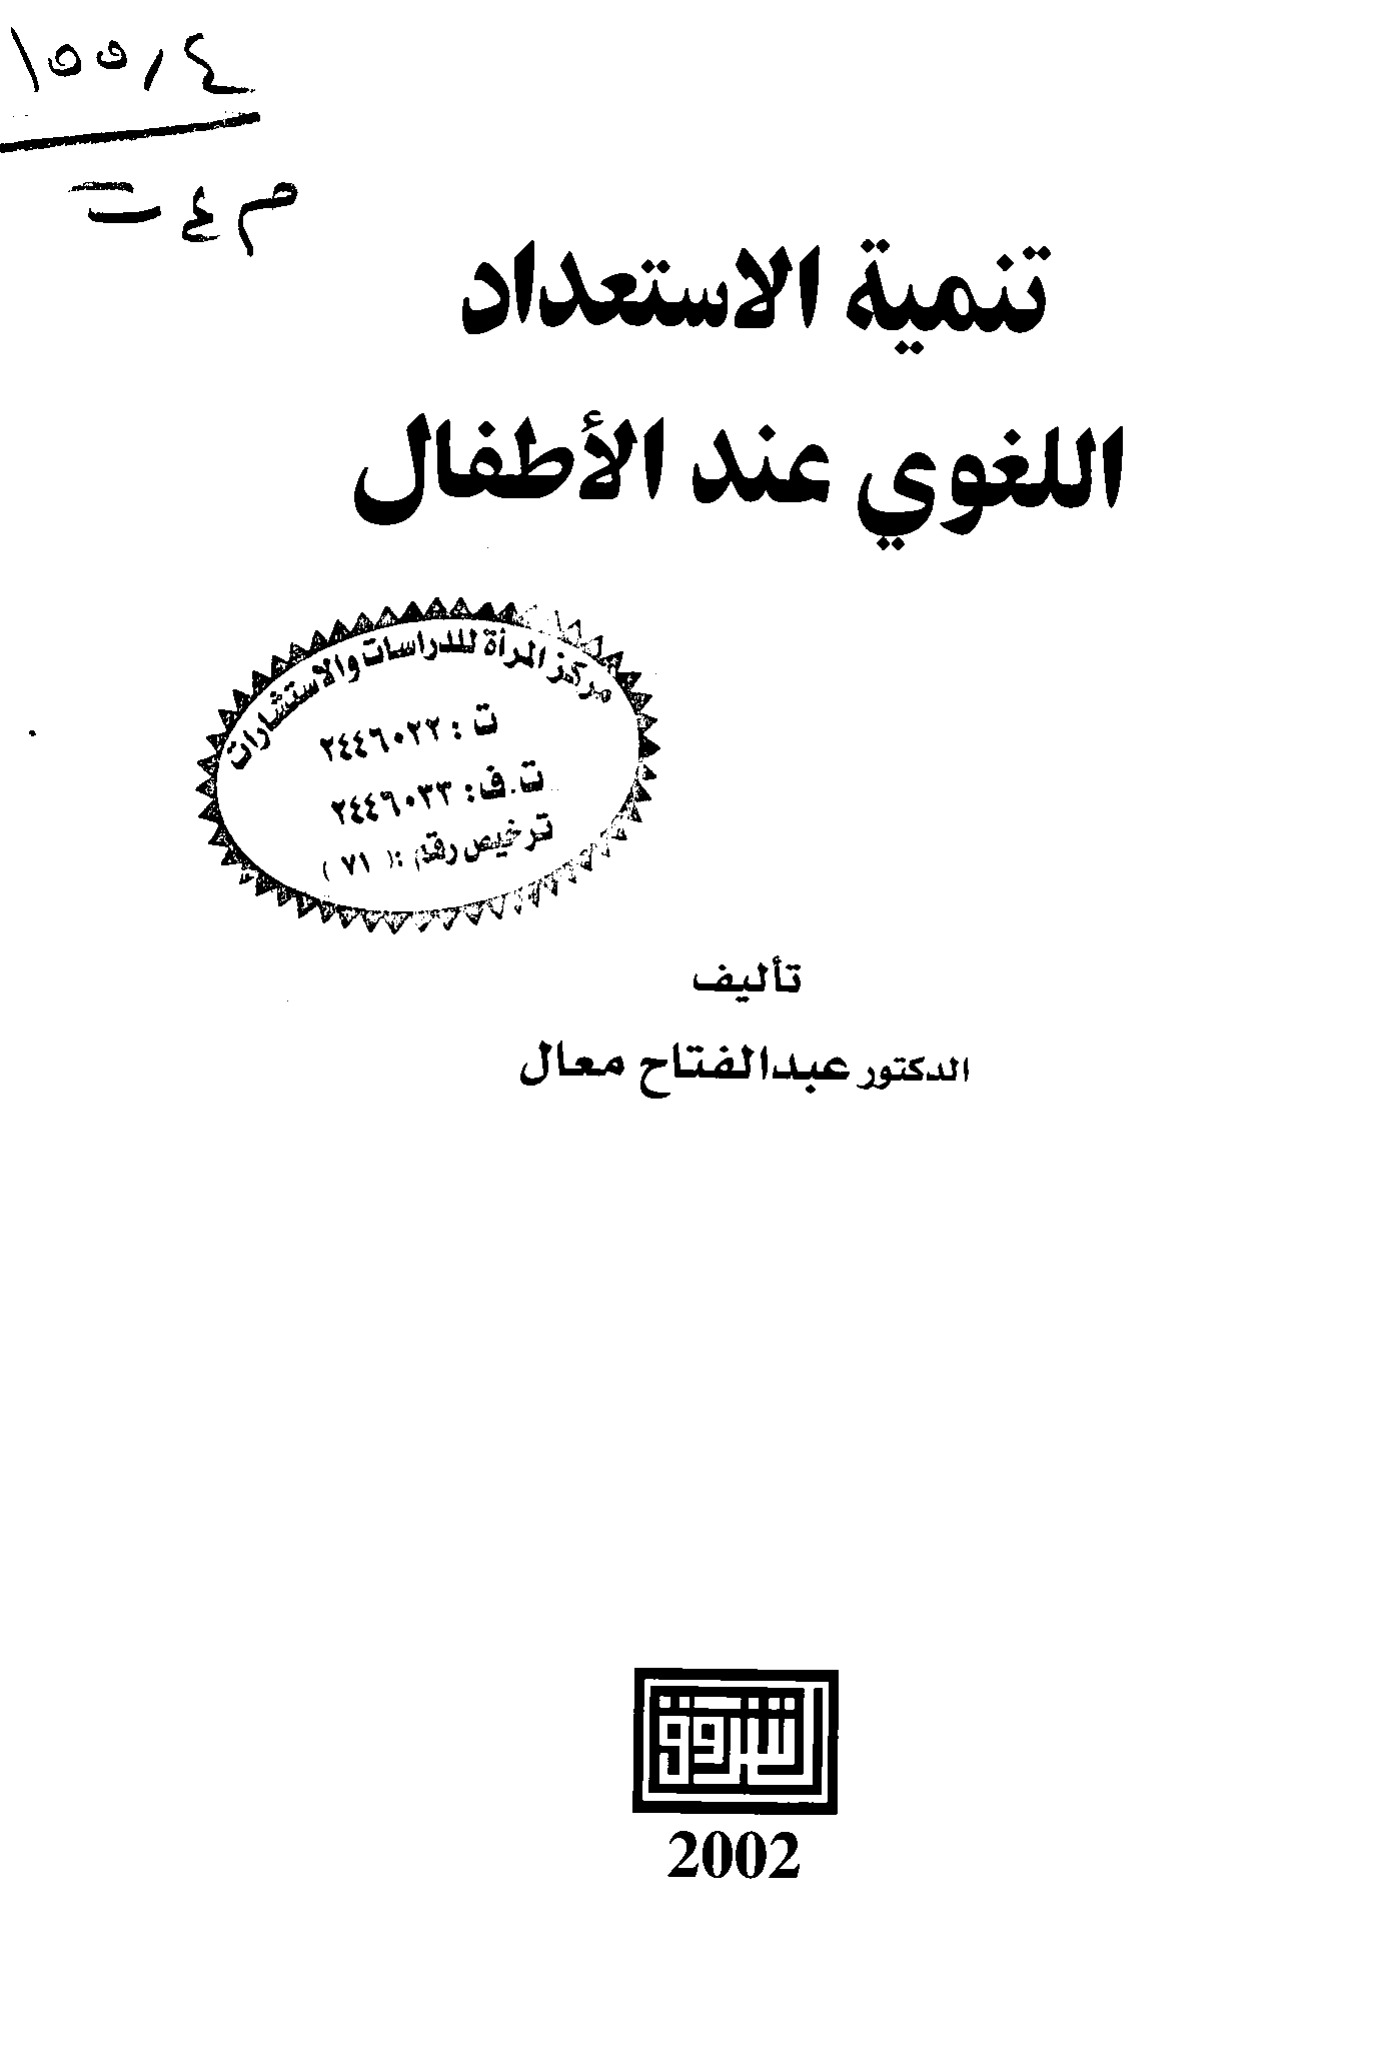 ١٥٥,٤
م ع ت
تنمية الاستعداد
اللغوي عند الأطفال
مركز المرأة للدراسات والاستشارات
ت : ٢٤٤٦٠٢٢
ت.ف: ٢٤٤٦٠٣٣
ترخيص رقم :( ٧١ )
تأليف
الدكتور عبدالفتاح معال
الشروق
2002